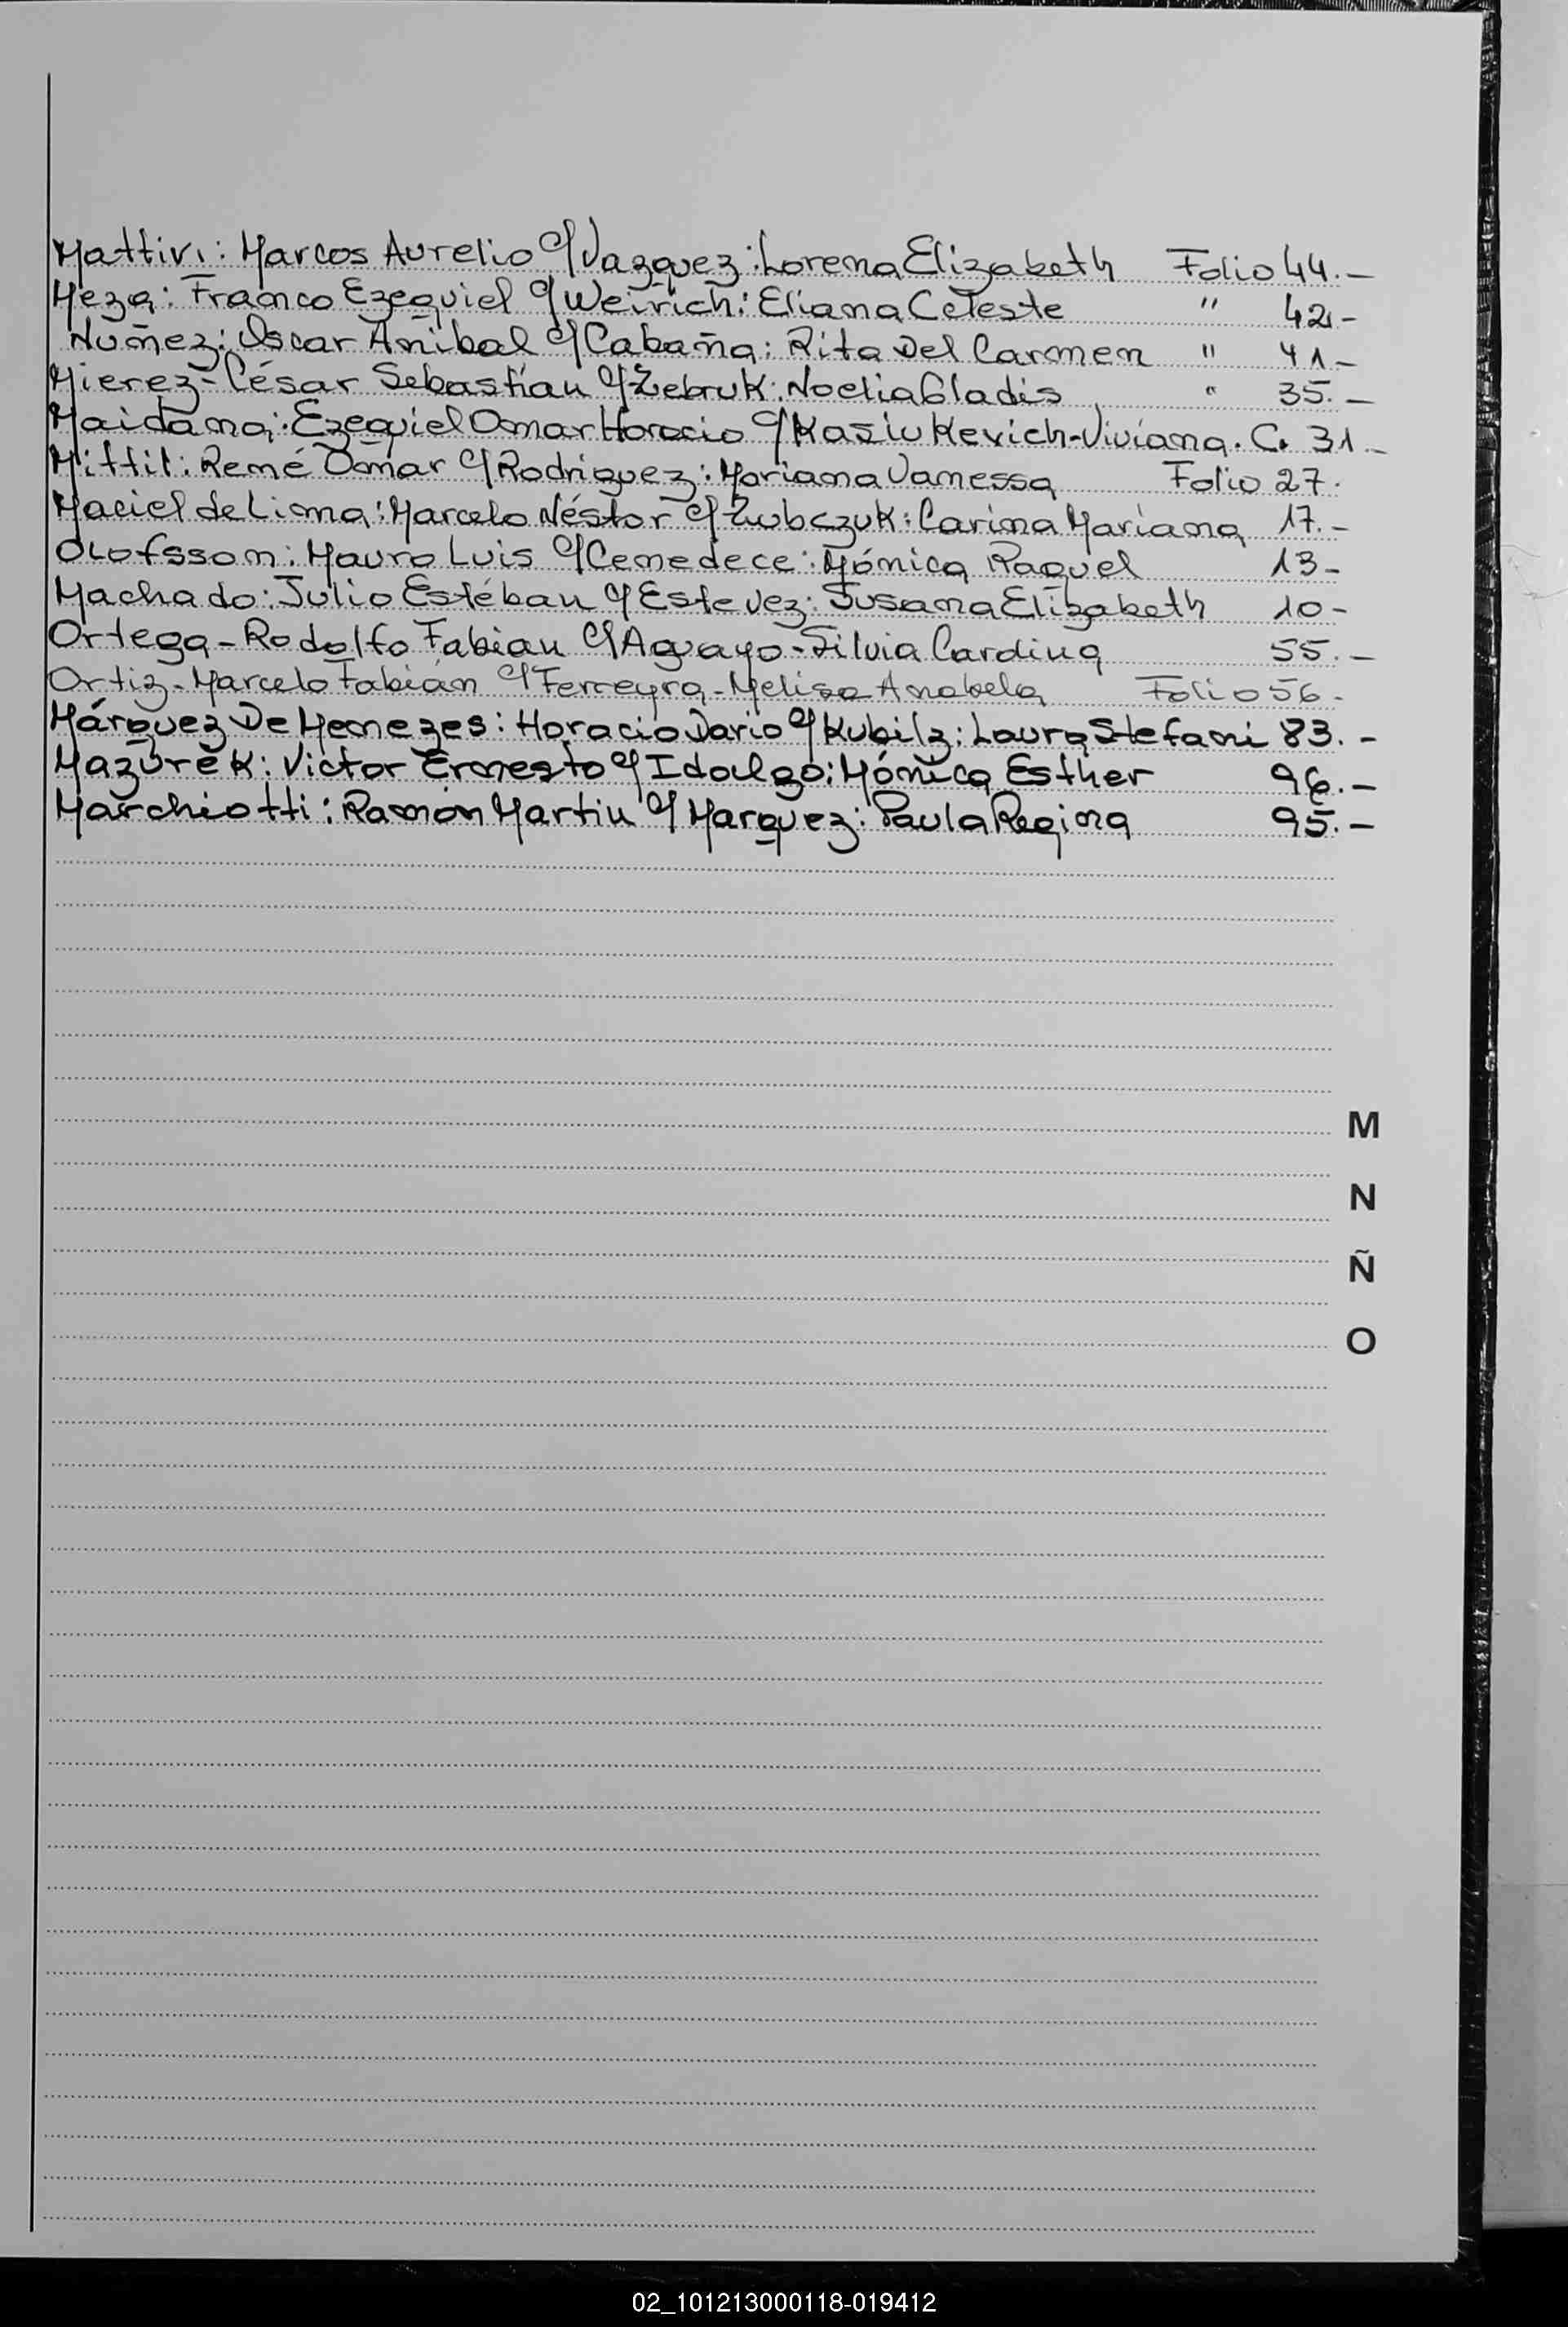 Mattivi: Marcos Aurelio c/ Vazquez: Lorena Elizabeth Folio 44.-
Meza: Franco Ezequiel c/ Weirich: Eliana Celeste " 42.-
Núñez: Oscar Anibal c/ Cabaña: Rita Del Carmen " 41.-
Mierez-César Sebastían c/ Zebruk: Noelia Gladis " 35.-
Maidana: Ezequiel Omar Horacio c/ Kasiukevich-Viviana. C. 31.-
Mittil: René Omar c/ Rodriguez: Mariana Vanessa Folio 27.
Maciel de Lima: Marcelo Néstor c/ Zubczuk: Carina Mariana 17.-
Olofsson: Mauro Luis c/ Cenedece: Mónica Raquel 13-
Machado: Julio Estéban c/ Estevez: Susana Elizabeth 10-
Ortega-Rodolfo Fabian c/ Aguayo-Silvia Cardina 55.-
Ortiz-Marcelo Fabián c/ Ferreyra-Melisa Anabela Folio 56-
Márquez De Menezes: Horacio Dario c/ Kubilz: Laura Stefani 83.-
Mazurek: Victor Ernesto c/ Idalgo: Mónica Esther 96.-
Marchiotti: Ramón Martin c/ Marquez: Paula Regina 95.-
M
N
Ñ
O
02_101213000118-019412